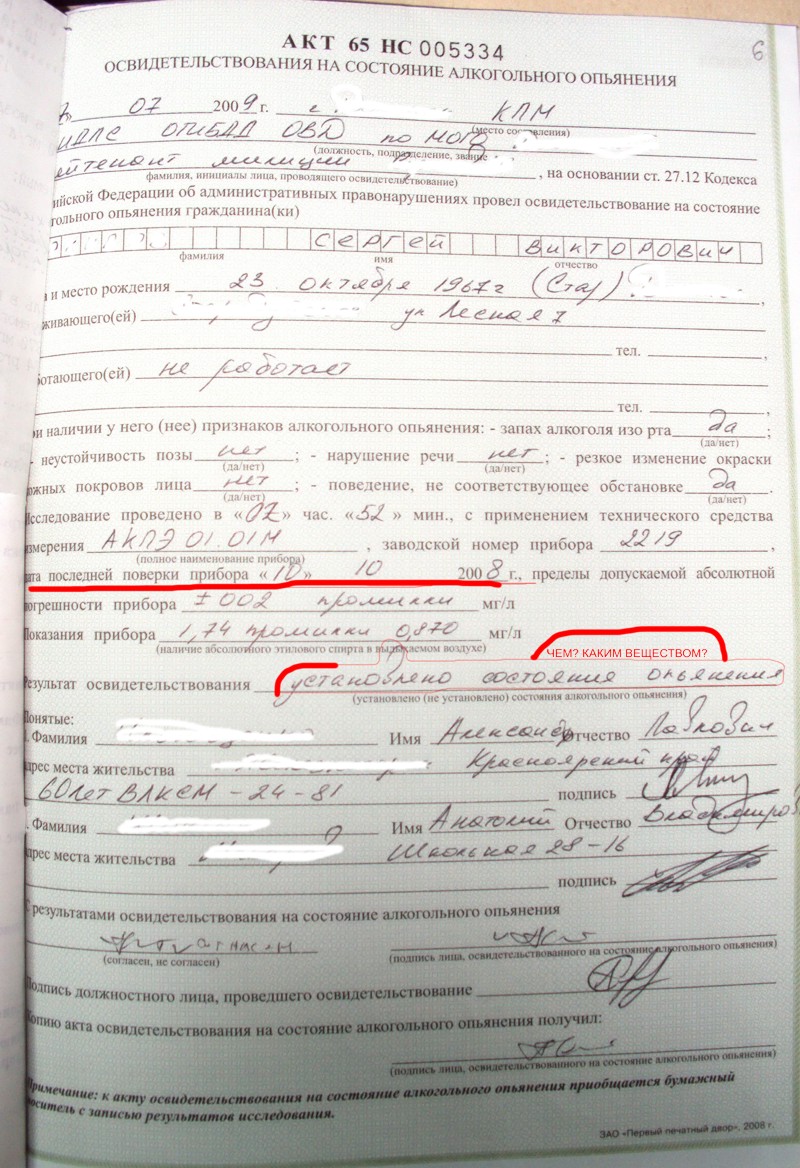 АКТ 65 НС 005334
6
ОСВИДЕТЕЛЬСТВОВАНИЯ НА СОСТОЯНИЕ АЛКОГОЛЬНОГО ОПЬЯНЕНИЯ
07 2009 г. г. КПМ
(место составления)
ИДПС ОГИБДД ОВД по МОГО
(должность, подразделение, звание
ейтенант милиции , на основании ст. 27.12 Кодекса
фамилия, инициалы лица, проводящего освидетельствование)
ийской Федерации об административных правонарушениях провел освидетельствование на состояние
гольного опьянения гражданина(ки)
СЕРГЕЙ ВИКТОРОВИЧ
фамилия имя отчество
а и место рождения 23 октября 1967г (Стар) ,
оживающего(ей) ул Лесная 7
тел. ,
ботающего(ей) не работает
тел. ,
ри наличии у него (нее) признаков алкогольного опьянения: - запах алкоголя изо рта да ;
(да/нет)
- неустойчивость позы нет ; - нарушение речи нет ; - резкое изменение окраски
(да/нет) (да/нет)
ожных покровов лица нет ; - поведение, не соответствующее обстановке да .
(да/нет) (да/нет)
Исследование проведено в «02» час. «52» мин., с применением технического средства
измерения АКПЭ 01.01М , заводской номер прибора 2219 ,
(полное наименование прибора)
ата последней поверки прибора «10» 10 2008 г., пределы допускаемой абсолютной
погрешности прибора ± 002 промилки мг/л
Показания прибора 1,74 промилки 0,870 мг/л
(наличие абсолютного этилового спирта в выдыхаемом воздухе)
ЧЕМ? КАКИМ ВЕЩЕСТВОМ?
Результат освидетельствования установлено состояния опьянения
(установлено (не установлено) состояния алкогольного опьянения)
Понятые:
. Фамилия Имя Александр Отчество Павлович
дрес места жительства Красноярский край
60 лет ВЛКСМ - 24 - 81 подпись
. Фамилия Имя Анатолий Отчество Владимиров
дрес места жительства Школьная 28-16
подпись
С результатами освидетельствования на состояние алкогольного опьянения
согласен
(согласен, не согласен) (подпись лица, освидетельствованного на состояние алкогольного опьянения)
Подпись должностного лица, проведшего освидетельствование
Копию акта освидетельствования на состояние алкогольного опьянения получил:
(подпись лица, освидетельствованного на состояние алкогольного опьянения)
Примечание: к акту освидетельствования на состояние алкогольного опьянения приобщается бумажный
носитель с записью результатов исследования.
ЗАО «Первый печатный двор», 2008 г.